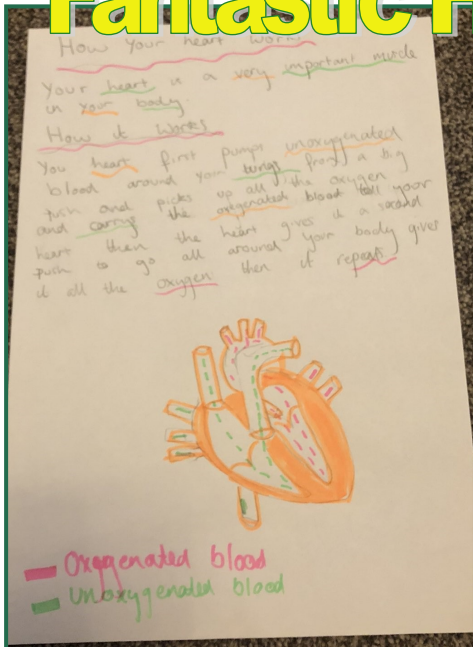 Fantastic
How Your heart works
Your heart is a very important muscle
in your body.
How it works
You heart first pumps unoxygenated
blood around your lungs a big
push and picks up all the oxygen
and carrys the oxygenated blood your
heart then the heart gives it a second
push to go all around your body gives
it all the oxygen then it repeats
Oxygenated blood
unoxygenated blood